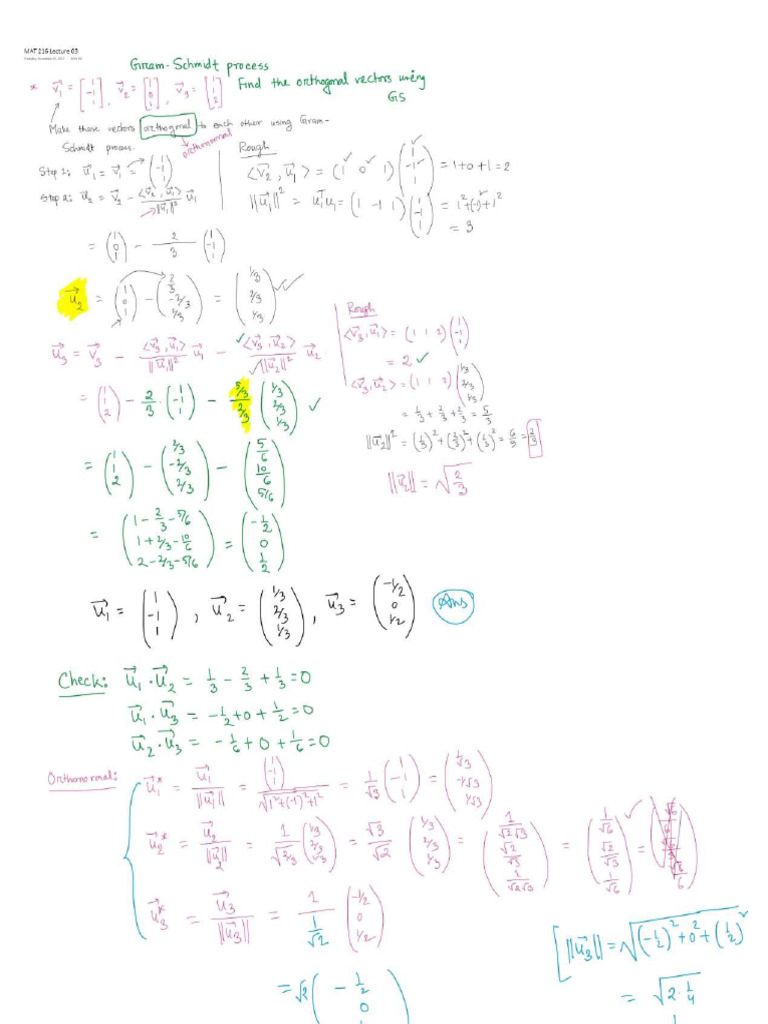 MAT 216 Lecture 03
Gram-Schmidt process
* v⃗₁ = [1 -1 1], v⃗₂ = [1 0 1], v⃗₃ = [1 1 2] Find the orthogonal vectors using GS
Make these vectors orthogonal to each other using Gram-
Schmidt process.
orthonormal
Step 1: u⃗₁ = v⃗₁ = (1 -1 1)
Step 2: u⃗₂ = v⃗₂ - <v⃗₂, u⃗₁>/||u⃗₁||² u⃗₁
Rough
<v⃗₂, u⃗₁> = (1 0 1)(1 -1 1) = 1+0+1 = 2
||u⃗₁||² = u₁ᵀu₁ = (1 -1 1)(1 -1 1) = 1²+(-1)²+1²
= 3
= (1 0 1) - 2/3 (1 -1 1)
u⃗₂ = (1 0 1) - (2/3 -2/3 1/3) = (1/3 2/3 1/3)
u⃗₃ = v⃗₃ - <v⃗₃, u⃗₁>/||u⃗₁||² u⃗₁ - <v⃗₃, u⃗₂>/||u⃗₂||² u⃗₂
= (1 1 2) - 2/3 · (1 -1 1) - (5/3)/(2/3) (1/3 2/3 1/3)
= (1 1 2) - (2/3 -2/3 2/3) - (5/6 10/6 5/6)
= (1-2/3-5/6 1+2/3-10/6 2-2/3-5/6) = (-1/2 0 1/2)
Rough
<v⃗₃, u⃗₁> = (1 1 2)(1 -1 1)
= 2
<v⃗₃, u⃗₂> = (1 1 2)(1/3 2/3 1/3)
= 1/3 + 2/3 + 2/3 = 5/3
||u⃗₂||² = (1/3)² + (2/3)² + (1/3)² = 6/9 = 2/3
||u⃗₂|| = √(2/3)
u⃗₁ = (1 -1 1), u⃗₂ = (1/3 2/3 1/3), u⃗₃ = (-1/2 0 1/2) Ans
Check: u⃗₁ · u⃗₂ = 1/3 - 2/3 + 1/3 = 0
u⃗₁ · u⃗₃ = -1/2 + 0 + 1/2 = 0
u⃗₂ · u⃗₃ = -1/6 + 0 + 1/6 = 0
Orthonormal: u⃗₁* = u⃗₁/||u⃗₁|| = (1 -1 1)/√(1²+(-1)²+1²) = 1/√3 (1 -1 1) = (1/√3 -1/√3 1/√3)
u⃗₂* = u⃗₂/||u⃗₂|| = 1/√(2/3) (1/3 2/3 1/3) = √3/√2 (1/3 2/3 1/3) = (1/√2√3 √2/√3 2/√2√3) = (1/√6 √2/√3 1/√6) =
u⃗₃* = u⃗₃/||u⃗₃|| = 1/(1/√2) (-1/2 0 1/2)
[||u⃗₃|| = √((-1/2)² + 0² + (1/2)²)
= √2 (-1/2 0
= √(2 · 1/4)